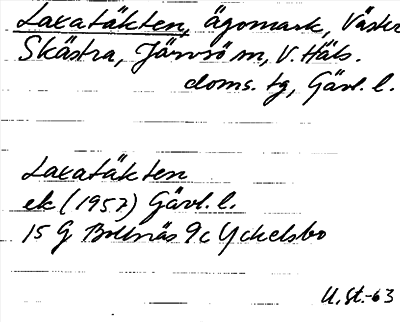 Laxatäkten, ägomark, Väster
Skästra, Järvsö sn, V. Häls.
doms. tg, Gävl. l.
Laxatäkten
ek (1957) Gävl. l.
15 G Bollnäs 9c Yckelsbo
U.St.-63